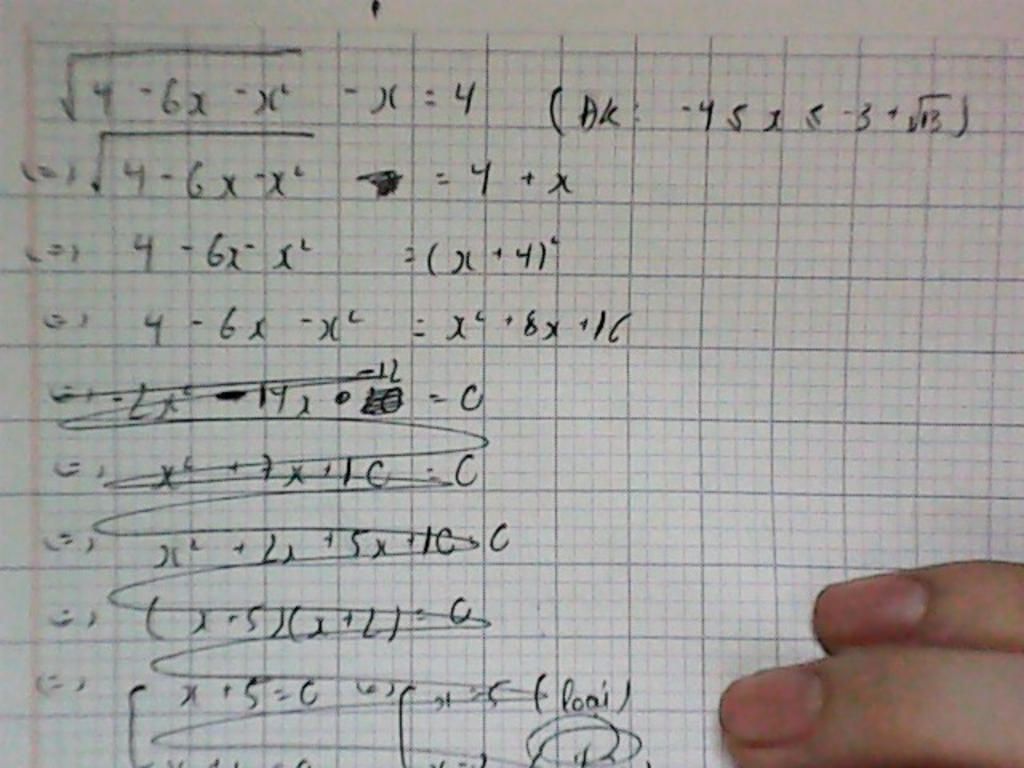 √(4 - 6x - x²) - x = 4 (ĐK: -4 ≤ x ≤ -3 + √13)
<=> √(4 - 6x - x²) = 4 + x
<=> 4 - 6x - x² = (x + 4)²
<=> 4 - 6x - x² = x² + 8x + 16
<=> -2x² - 14x - 12 = 0
<=> x² + 7x + 10 = 0
<=> x² + 2x + 5x + 10 = 0
<=> (x + 5)(x + 2) = 0
<=> [ x + 5 = 0 <=> [ x = 5 (loại)